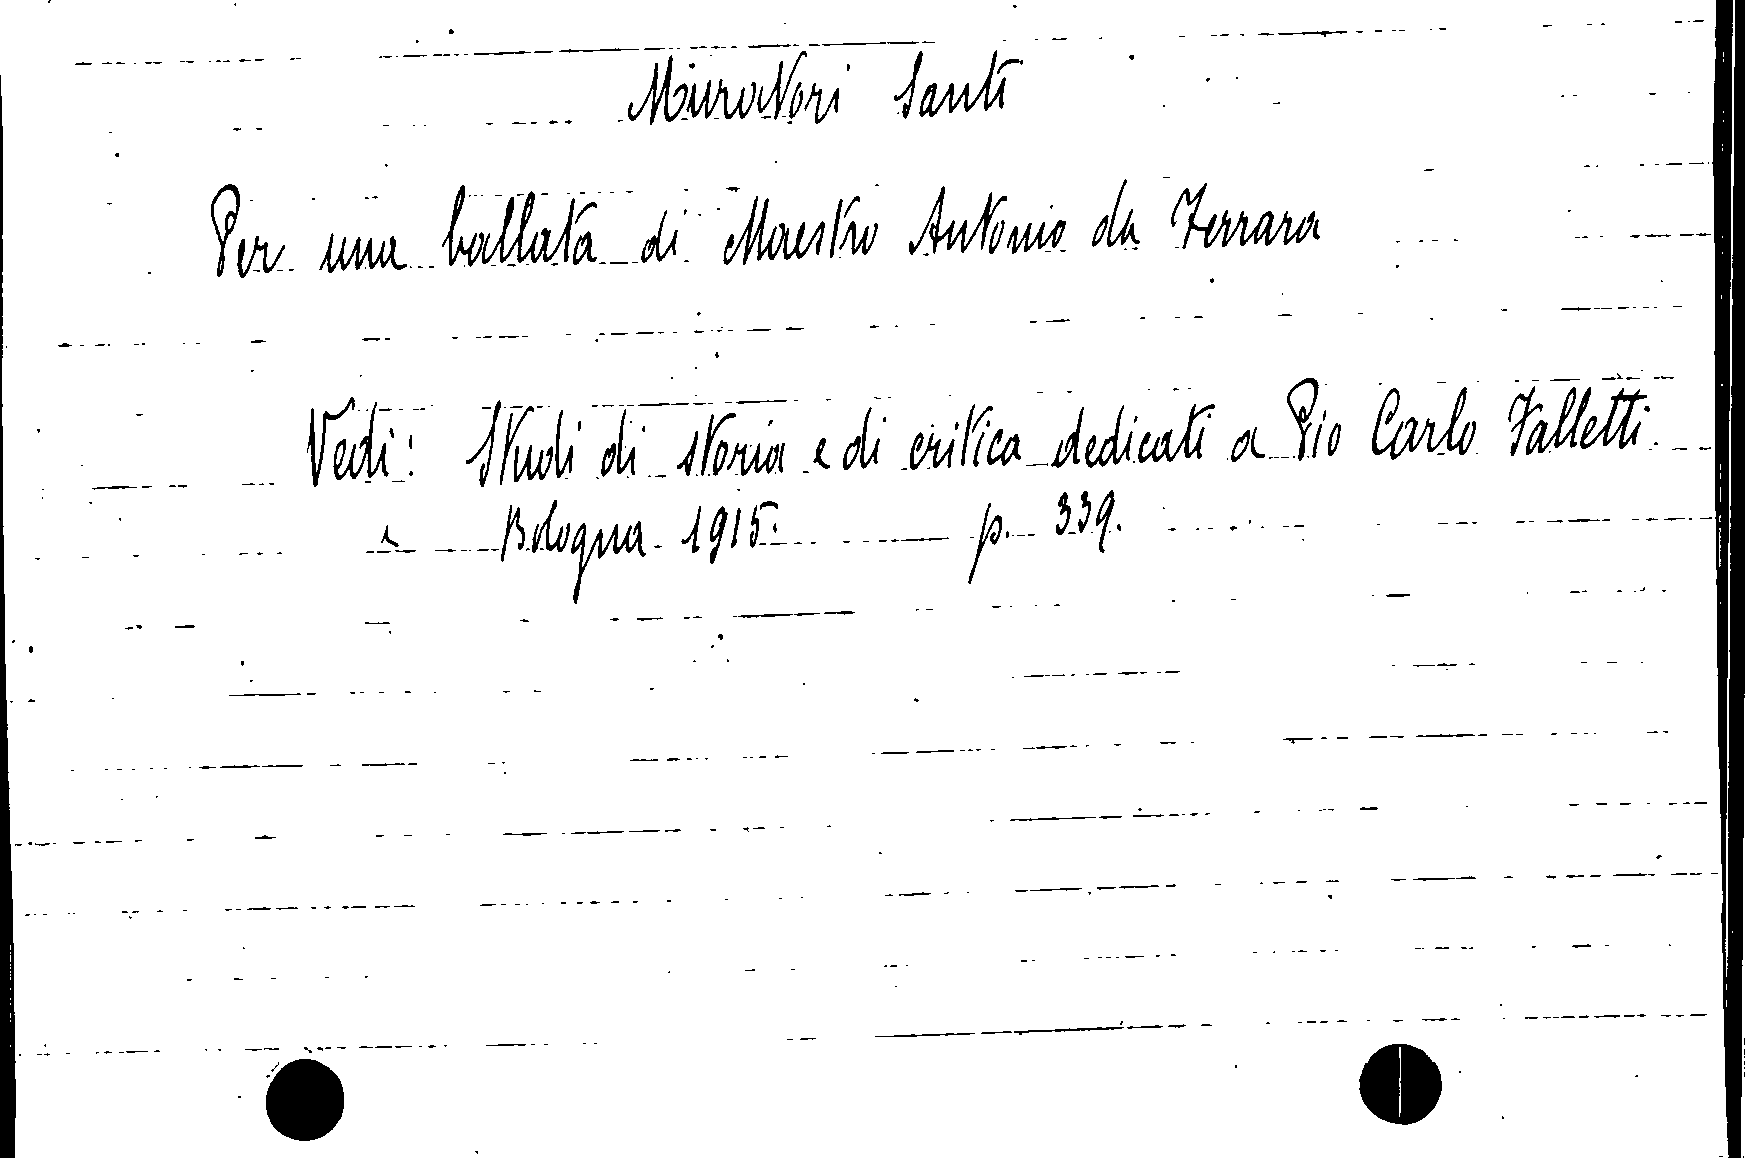 Muratori Santi
Per una ballata di Maestro Antonio da Ferrara
Vedi: Studi di storia e di critica dedicati a Pio Carlo Falletti.
Bologna 1915. p. 339.